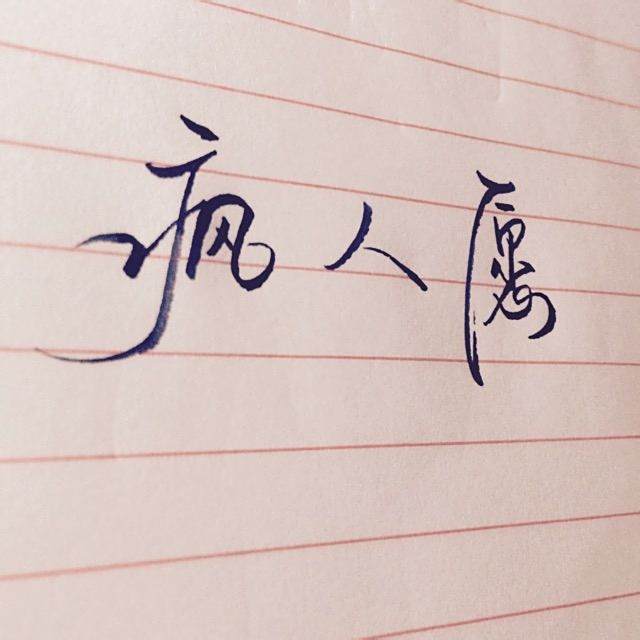 疯人愿